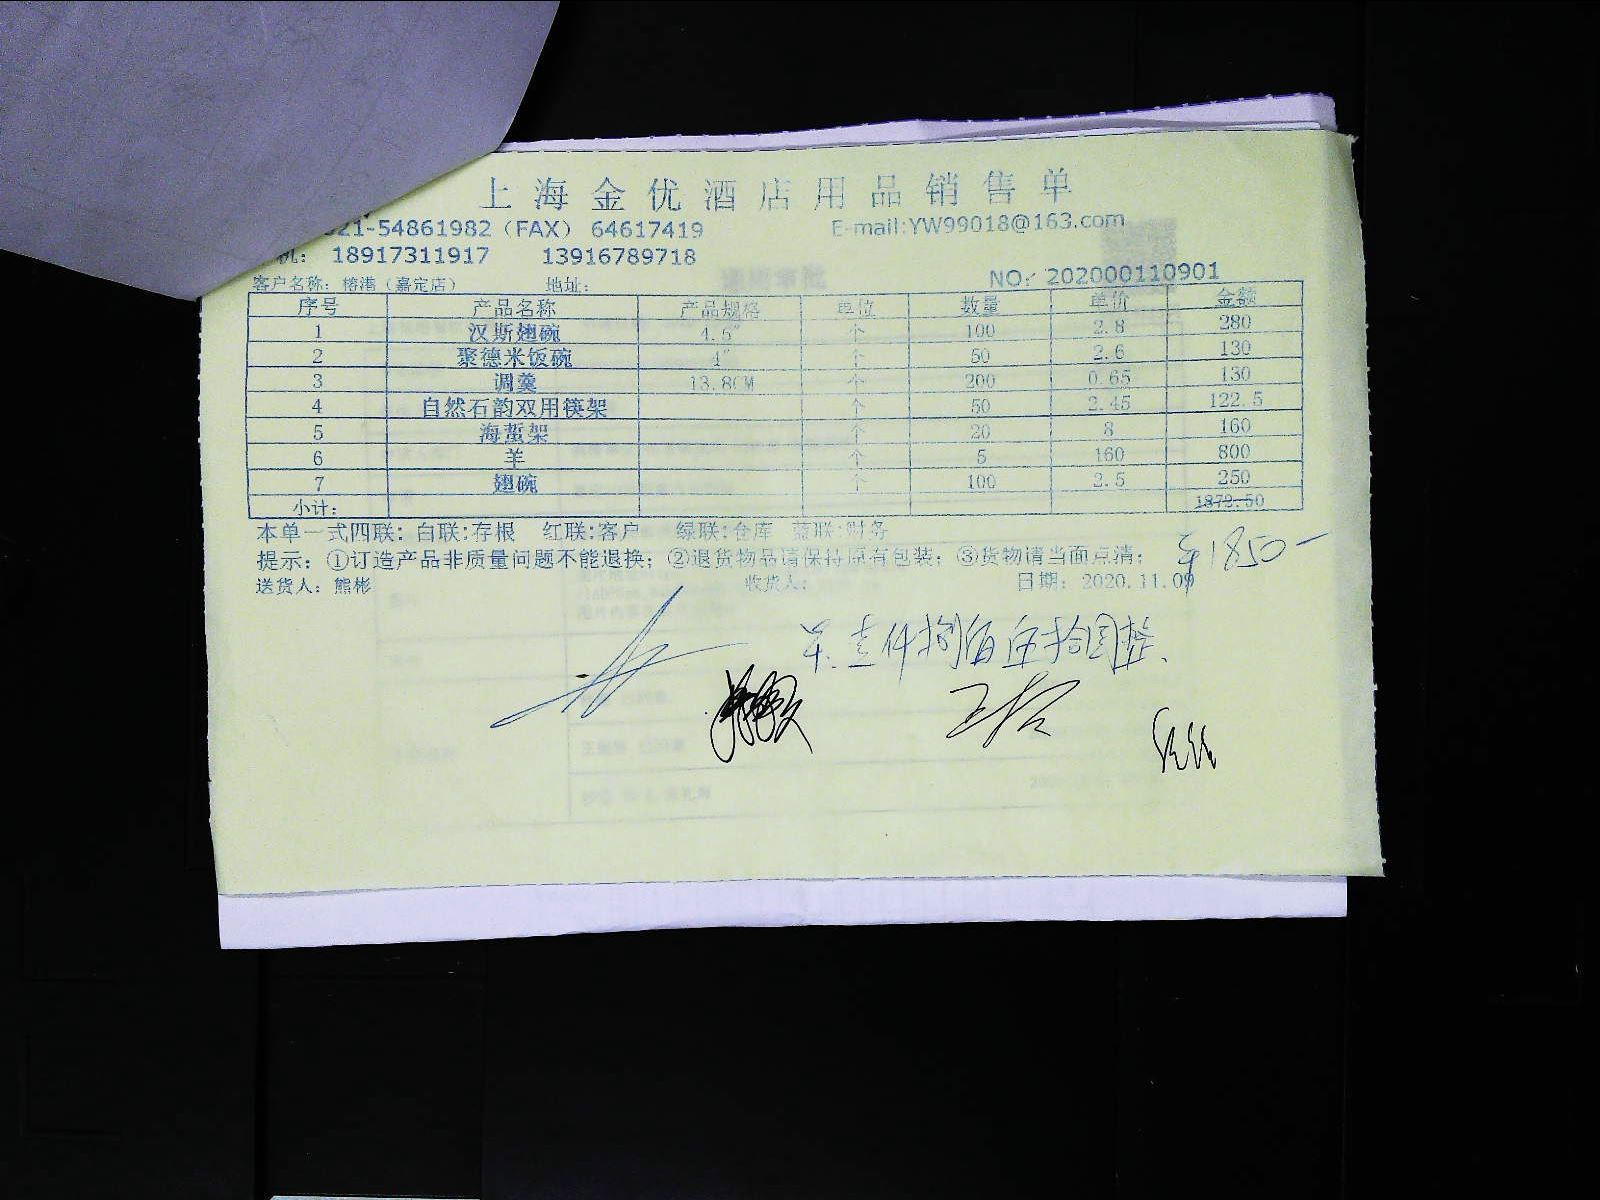 上海金优酒店用品销售单
21-54861982（FAX） 64617419 E-mail:YW99018@163.com
机： 18917311917 13916789718
客户名称：榕港（嘉定店） 地址： NO：202000110901
序号 产品名称 产品规格 单位 数量 单价 金额
1 汉斯翅碗 4.5" 个 100 2.8 280
2 聚德米饭碗 4" 个 50 2.6 130
3 调羹 13.8CM 个 200 0.65 130
4 自然石韵双用筷架 个 50 2.45 122.5
5 海蜇架 个 20 8 160
6 羊 个 5 160 800
7 翅碗 个 100 2.5 250
小计： 1872.50
本单一式四联：白联:存根 红联:客户 绿联:仓库 蓝联:财务
提示：①订造产品非质量问题不能退换；②退货物品请保持原有包装；③货物请当面点清；
¥1850-
送货人：熊彬 收货人： 日期：2020.11.09
壹仟捌佰伍拾圆整